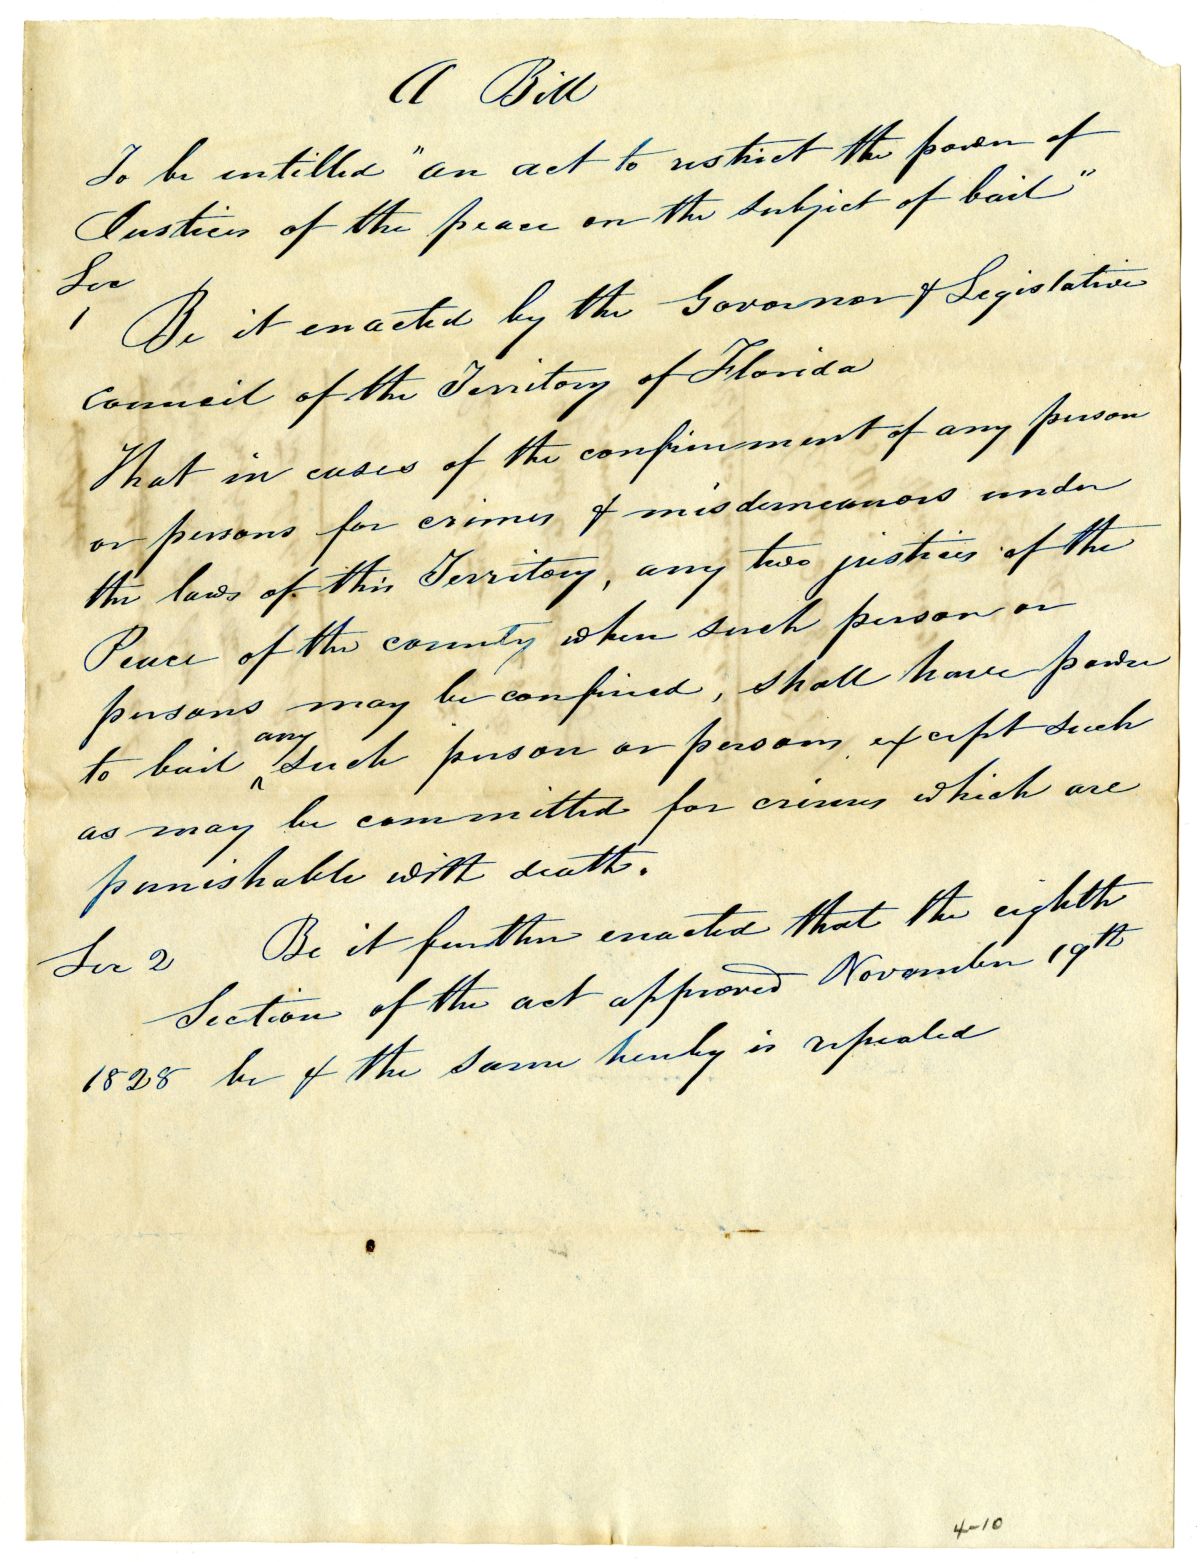 A Bill
To be intilled "an act to restrict the power of
Justices of the peace on the subject of bail"
Sec
1 Be it enacted by the Governor & Legislative
Council of the Territory of Florida
That in cases of the confinement of any person
or persons for crimes & misdemeanors under
the laws of this Territory, any two justices of the
Peace of the county when such person or
persons may be confined, shall have power
to bail ^any such person or persons except such
as may be committed for crimes which are
punishable with death.
Sec 2 Be it further enacted that the eighth
Section of the act approved November 19th
1828 be & the same hereby is repealed
4-10